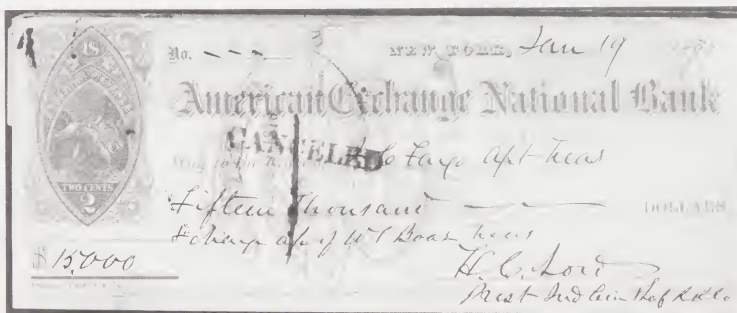 No. - - - NEW YORK, Jan 19
American Exchange National Bank
CANCELED
Pay to the order of Fargo Ast Treas
Fifteen Thousand — — DOLLARS
& charge of W Boas Treas
$ 15,000
H. C. Lord
Prest Ind Cin & Laf RR Co
TWO CENTS
2